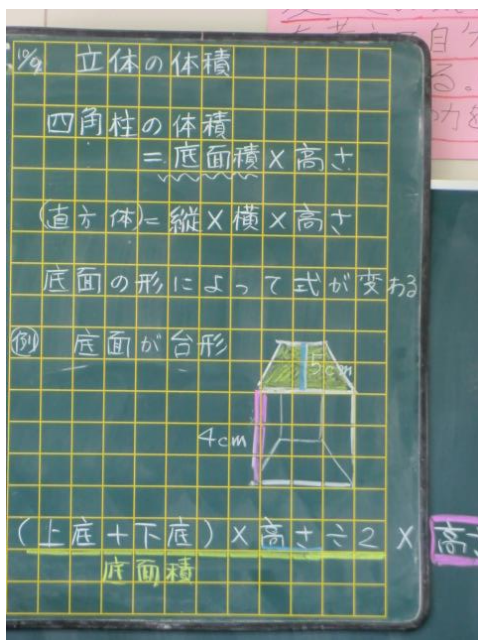 10/9 立体の体積
四角柱の体積
=底面積×高さ
(直方体)=縦×横×高さ
底面の形によって式が変わる
例 底面が台形
5cm
4cm
(上底+下底)×高さ÷2×高さ
底面積